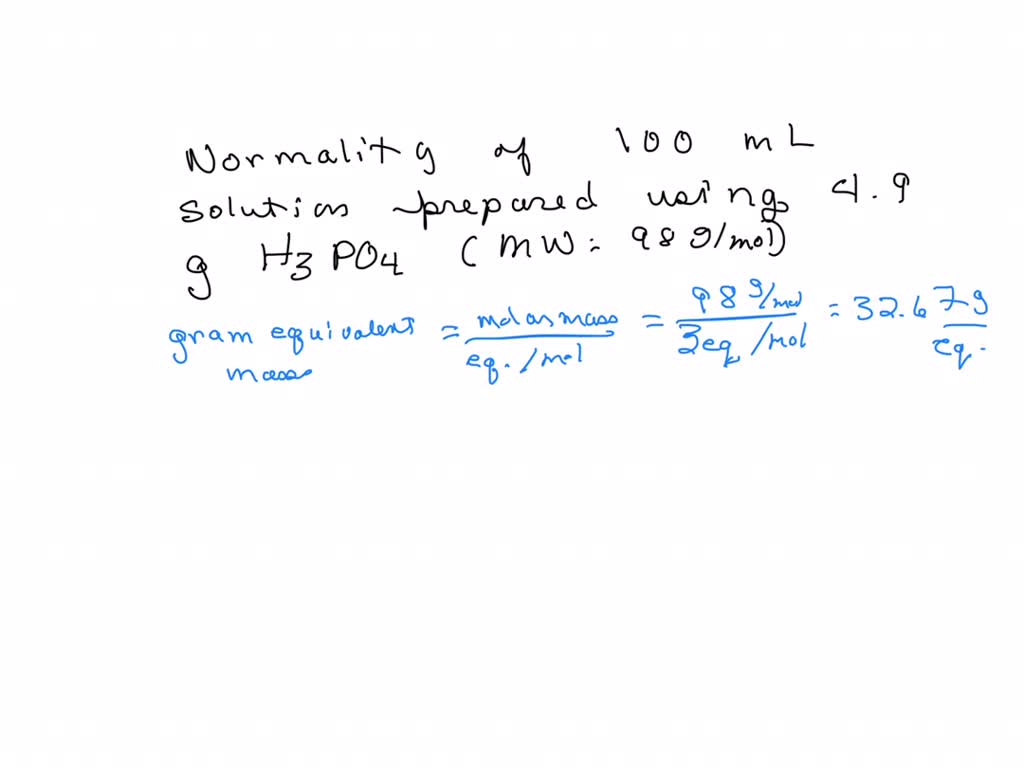 Normality of 100 mL
solution prepared using 4.9
g H3PO4 (MW: 98 g/mol)
gram equivalent mass = molar mass / eq./mol = 98 g/mol / 3eq/mol = 32.67g / eq.